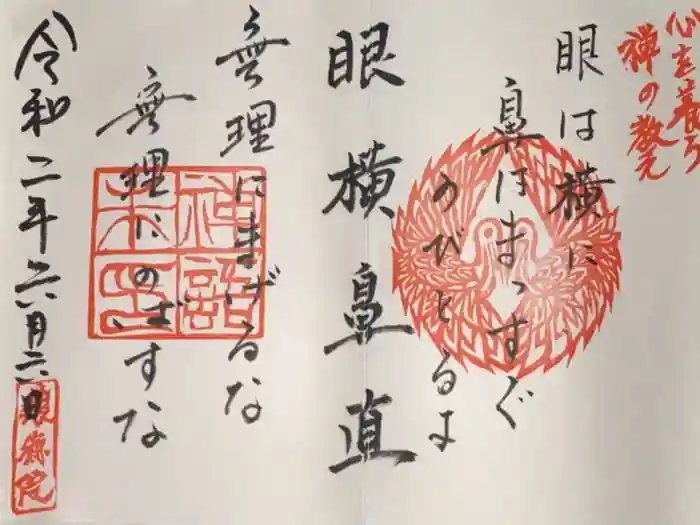 心を養う
禅の教え
眼は横に
鼻はまっすぐ
のびとるよ
眼横鼻直
無理にまげるな
無理にのばすな
令和二年六月六日
禅語朱印